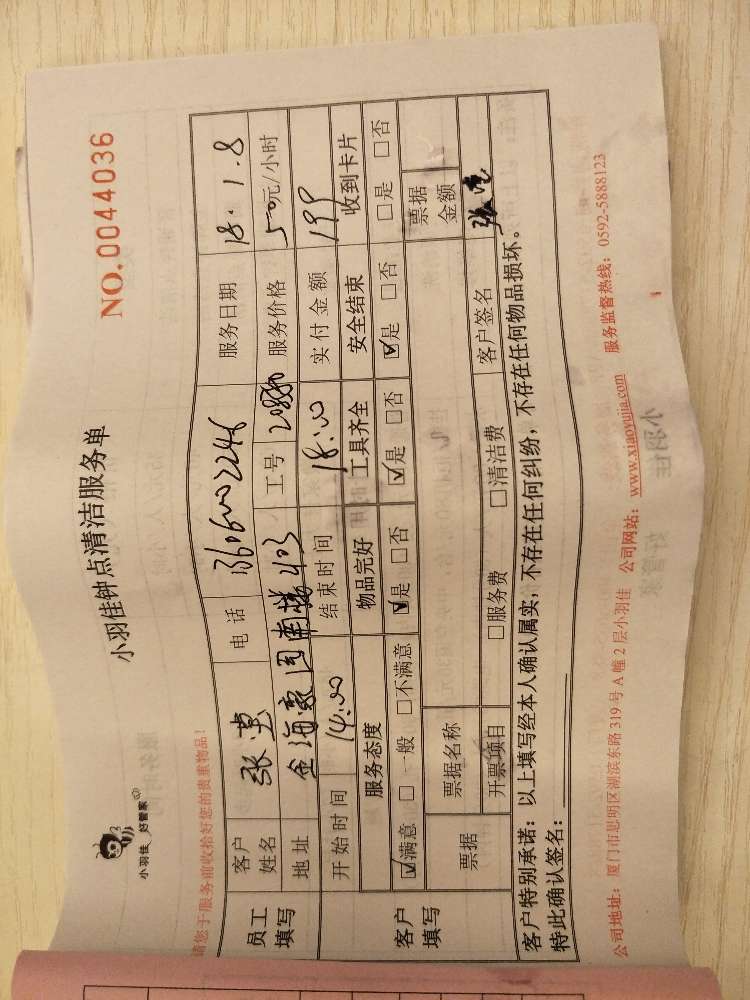 小羽佳 好管家
小羽佳钟点清洁服务单
NO.0044036
请您于服务前收拾好您的贵重物品!
员工填写 客户姓名 张 电话 服务日期 18.1.8
地址 金海豪园南楼403 工号 服务价格 50元/小时
开始时间 14:00 结束时间 18:00 实付金额 199
客户填写 服务态度 物品完好 工具齐全 安全结束 收到卡片
☑满意 □一般 □不满意 ☑是 □否 ☑是 □否 ☑是 □否 □是 □否
票据 票据名称 票据金额
开票项目 □服务费 □清洁费 客户签名 张
客户特别承诺:以上填写经本人确认属实,不存在任何纠纷,不存在任何物品损坏。
特此确认签名:
公司地址:厦门市思明区湖滨东路319号A幢2层小羽佳 公司网站:www.xiaoyujia.com 服务监督热线:0592-5888123